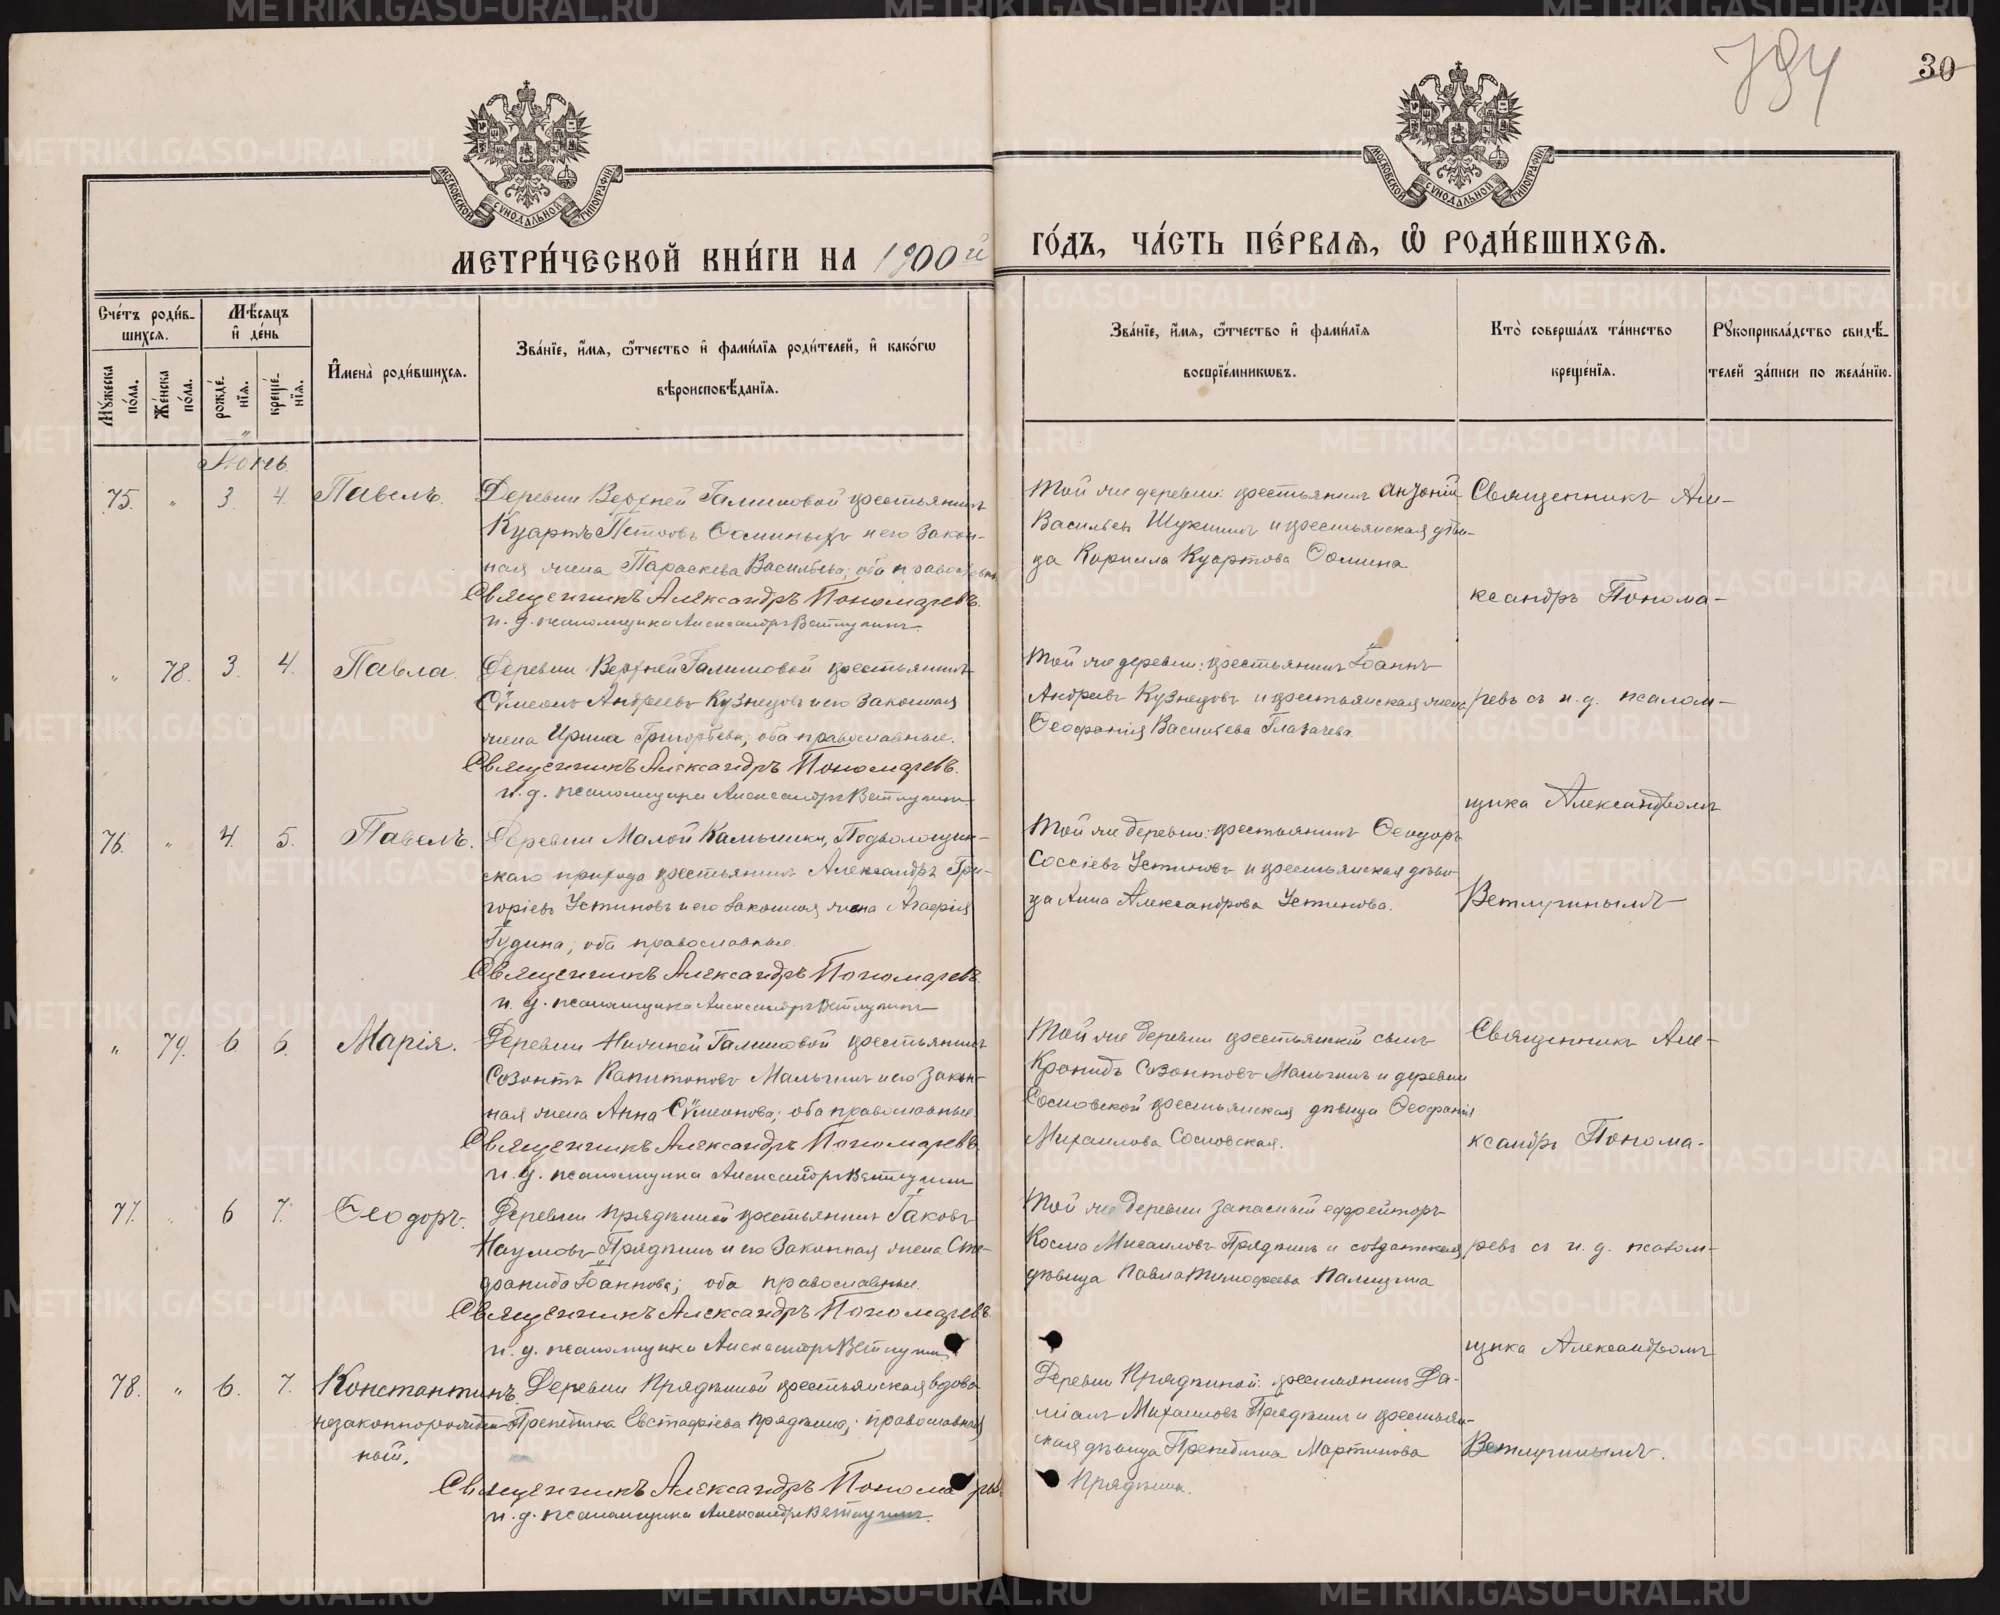 794
30
МОСКОВСКОЙ СѴНОДАЛЬНОЙ ТИПОГРАФІИ
МОСКОВСКОЙ СѴНОДАЛЬНОЙ ТИПОГРАФІИ
МЕТРИ́ЧЕСКОЙ КНИ́ГИ НА 1900й ГО́ДЪ, ЧА́СТЬ ПЕ́РВАѦ, Ѽ РОДИ́ВШИХСѦ.
Сче́тъ роди́в-
шихсѧ.
Му́жеска по́ла.
Же́нска по́ла.
Мѣ́сяцъ
и҆ де́нь
рожде́-
нїѧ.
креще́-
нїѧ.
И҆мена̀ роди́вшихсѧ.
Зва́нїе, и҆́мѧ, ѻ҆́тчество и҆ фами́лїѧ роди́телей, и҆ како́гѡ
вѣроисповѣ́данїѧ.
Зва́нїе, и҆́мѧ, ѻ҆́тчество и҆ фами́лїѧ
воспрїе́мникѡвъ.
Кто̀ соверша́лъ та́инство
креще́нїѧ.
Рꙋкоприкла́дство свидѣ́-
телей за́писи по жела́нїю.
Іюнь
75. „ 3. 4. Павелъ.
Деревни Верхней Галишовой крестьянинъ
Куартъ Петровъ Ѳоминыхъ и его закон-
ная жена Параскева Васильева; оба православны
Священникъ Александръ Пономаревъ.
и. д. псаломщика Александръ Ветлугинъ.
Той же деревни: крестьянинъ Антоній
Васильевъ Шукшинъ и крестьянская дѣви-
ца Кирилла Куартова Ѳомина
Священникъ Але-
ксандръ Понома-
ревъ съ и. д. псалом-
щика Александромъ
Ветлугинымъ
„ 78. 3. 4. Павла.
Деревни Верхней Галишовой крестьянинъ
Сѵмеонъ Андреевъ Кузнецовъ и его законная
жена Ирина Григорьева; оба православные.
Священникъ Александръ Пономаревъ.
и. д. псаломщика Александръ Ветлугинъ
Той же деревни: крестьянинъ Іоаннъ
Андреевъ Кузнецовъ и крестьянская жена
Ѳеофанія Васильева Глазачева.
76. „ 4. 5. Павелъ.
Деревни Малой Камышки, Подволошин-
скаго прихода крестьянинъ Александръ Гри-
горіевъ Устиновъ и его законная жена Агафія
Гудина; оба православные.
Священникъ Александръ Пономаревъ.
и. д. псаломщика Александръ Ветлугинъ
Той же деревни: крестьянинъ Ѳеодоръ
Соссіевъ Устиновъ и крестьянская дѣви-
ца Анна Александрова Устинова.
„ 79. 6. 6. Марія.
Деревни Нижней Галишовой крестьянинъ
Созонтъ Капитоновъ Мальгинъ и его закон-
ная жена Анна Сѵмеонова; оба православные.
Священникъ Александръ Пономаревъ.
и. д. псаломщика Александръ Ветлугинъ
Той же деревни крестьянскій сынъ
Кронидъ Созонтовъ Мальгинъ и деревни
Сосновской крестьянская дѣвица Ѳеофанія
Михаилова Сосновская.
Священникъ Але-
ксандръ Понома-
ревъ съ и. д. псалом-
щика Александромъ
Ветлугинымъ.
77. „ 6 7. Ѳеодоръ.
Деревни Прядкиной крестьянинъ Іаковъ
Наумовъ Прядкинъ и его законная жена Сте-
фанида Іоаннова; оба православные.
Священникъ Александръ Пономаревъ.
и. д. псаломщика Александръ Ветлугинъ
Той же деревни запасный ефрейторъ
Косма Михаиловъ Прядкинъ и солдатская
дѣвица Павла Тимофеева
78. „ 6. 7. Константинъ
незаконнорожден-
ный.
Деревни Прядкиной крестьянская вдова
Препедигна Евстафіева Прядкина; православная
Священникъ Александръ Пономаревъ
и. д. псаломщика Александръ Ветлугинъ.
Деревни Прядкиной: крестьянинъ Да-
міанъ Михаиловъ Прядкинъ и крестьян-
ская дѣвица Препедигна Мартинова
Прядкина.